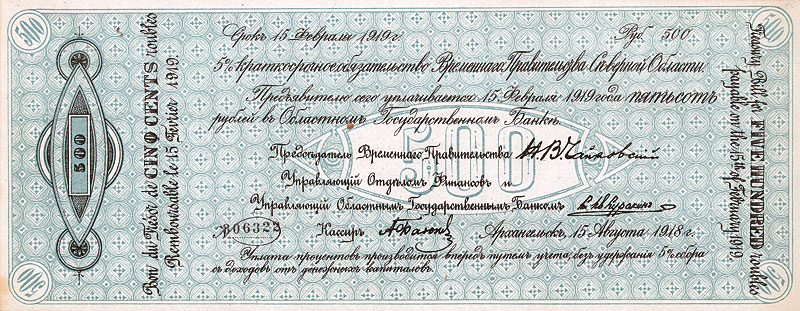 Срокъ 15 Февраля 1919 г. Руб. 500
5% краткосрочное обязательство Временнаго Правительства Сѣверной Области.
Предъявителю сего уплачивается 15 Февраля 1919 года пятьсотъ
рублей въ Областномъ Государственномъ Банкѣ.
500
Предсѣдатель Временнаго Правительства Н.В.Чайковскій
Управляющій Отдѣломъ Финансовъ и
Управляющій Областнымъ Государственнымъ Банкомъ
№ 06322 Кассиръ Архангельскъ, 15 Августа 1918 г.
Уплата процентовъ производится впередъ путемъ учета, безъ удержанія 5% сбора
съ доходовъ отъ денежныхъ капиталовъ.
Bon du Trésor de CINQ CENTS roubles
Remboursable le 15 Février 1919.
500
Treasury Bill for FIVE HUNDRED roubles
payable on the 15th of February 1919.
500
500
500
500